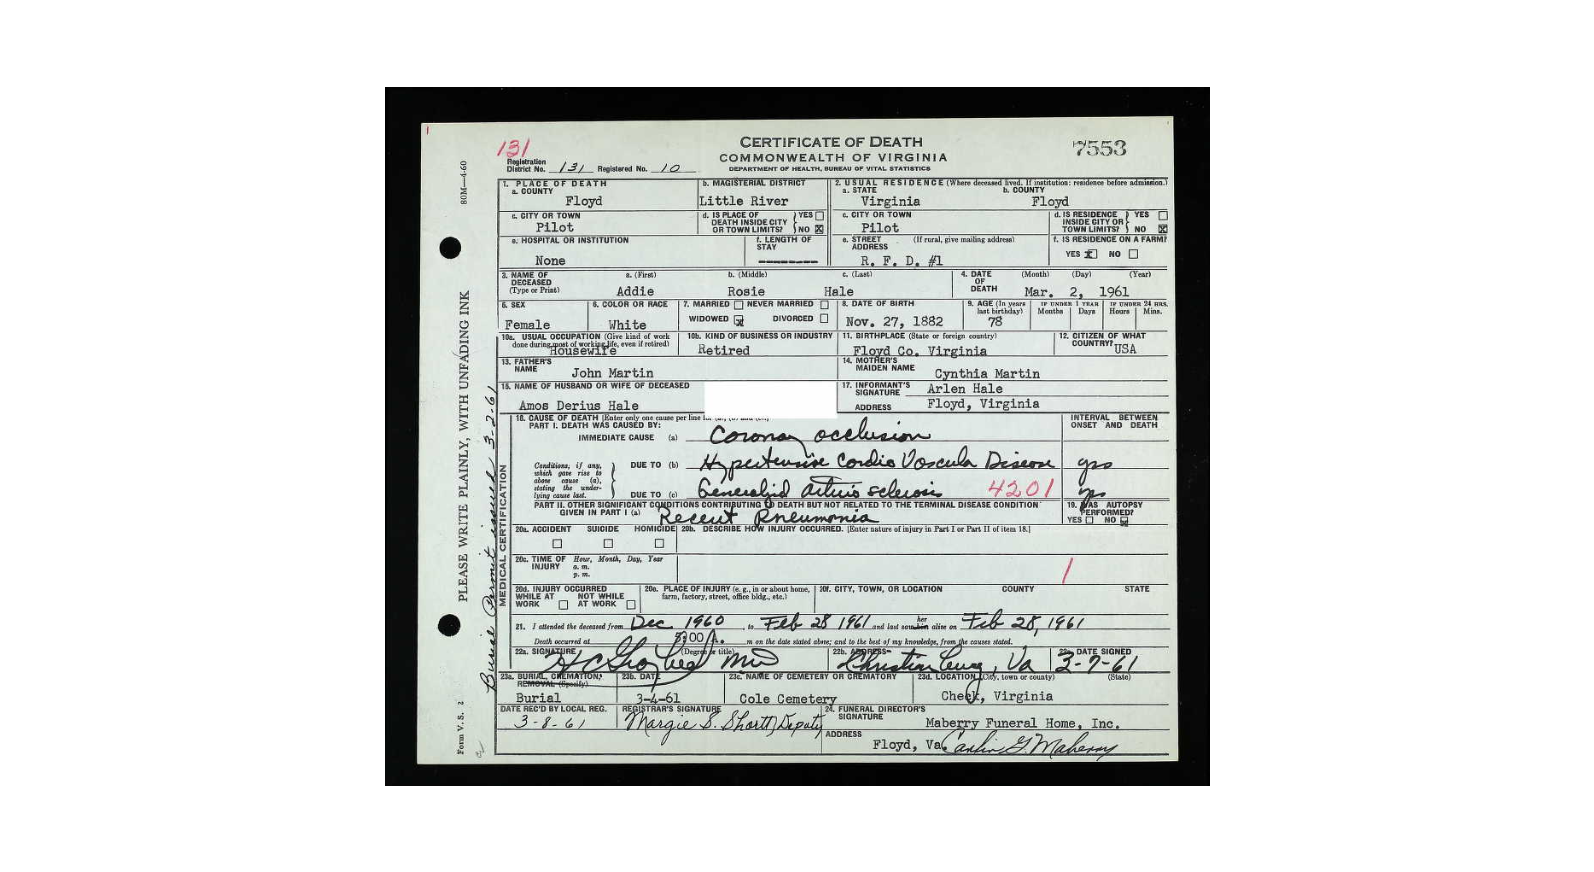 131
CERTIFICATE OF DEATH
COMMONWEALTH OF VIRGINIA
DEPARTMENT OF HEALTH, BUREAU OF VITAL STATISTICS
7553
Registration District No. 131 Registered No. 10
80M—4-60
PLEASE WRITE PLAINLY, WITH UNFADING INK
Burial Permit issued 3-2-61
Form V. S. 2
1. PLACE OF DEATH
a. COUNTY
Floyd
b. MAGISTERIAL DISTRICT
Little River
2. USUAL RESIDENCE (Where deceased lived. If institution: residence before admission.)
a. STATE
Virginia
b. COUNTY
Floyd
c. CITY OR TOWN
Pilot
d. IS PLACE OF DEATH INSIDE CITY OR TOWN LIMITS? YES NO
c. CITY OR TOWN
Pilot
d. IS RESIDENCE INSIDE CITY OR TOWN LIMITS? YES NO
e. HOSPITAL OR INSTITUTION
None
f. LENGTH OF STAY
e. STREET ADDRESS (If rural, give mailing address)
R. F. D. #1
f. IS RESIDENCE ON A FARM?
YES NO
3. NAME OF DECEASED (Type or Print)
a. (First) b. (Middle) c. (Last)
Addie Rosie Hale
4. DATE OF DEATH (Month) (Day) (Year)
Mar. 2, 1961
5. SEX
Female
6. COLOR OR RACE
White
7. MARRIED NEVER MARRIED
WIDOWED DIVORCED
8. DATE OF BIRTH
Nov. 27, 1882
9. AGE (In years last birthday)
78
IF UNDER 1 YEAR
Months Days
IF UNDER 24 HRS.
Hours Mins.
10a. USUAL OCCUPATION (Give kind of work done during most of working life, even if retired)
Housewife
10b. KIND OF BUSINESS OR INDUSTRY
Retired
11. BIRTHPLACE (State or foreign country)
Floyd Co. Virginia
12. CITIZEN OF WHAT COUNTRY?
USA
13. FATHER'S NAME
John Martin
14. MOTHER'S MAIDEN NAME
Cynthia Martin
15. NAME OF HUSBAND OR WIFE OF DECEASED
Amos Derius Hale
17. INFORMANT'S SIGNATURE
Arlen Hale
ADDRESS
Floyd, Virginia
MEDICAL CERTIFICATION
18. CAUSE OF DEATH [Enter only one cause per line
PART I. DEATH WAS CAUSED BY:
INTERVAL BETWEEN ONSET AND DEATH
IMMEDIATE CAUSE (a) Coronay occlusion
Conditions, if any, which gave rise to above cause (a), stating the underlying cause last.
DUE TO (b) Hypertensive Cardio Vascula Disease yrs
DUE TO (c) Generalizd arterio sclerosis 4201 yrs
PART II. OTHER SIGNIFICANT CONDITIONS CONTRIBUTING TO DEATH BUT NOT RELATED TO THE TERMINAL DISEASE CONDITION GIVEN IN PART I (a)
Recent Pneumonia
19. WAS AUTOPSY PERFORMED?
YES NO
20a. ACCIDENT SUICIDE HOMICIDE
20b. DESCRIBE HOW INJURY OCCURRED. [Enter nature of injury in Part I or Part II of item 18.]
20c. TIME OF INJURY Hour, Month, Day, Year
a. m.
p. m.
20d. INJURY OCCURRED
WHILE AT WORK NOT WHILE AT WORK
20e. PLACE OF INJURY (e. g., in or about home, farm, factory, street, office bldg., etc.)
20f. CITY, TOWN, OR LOCATION COUNTY STATE
21. I attended the deceased from Dec 1960, to Feb 28 1961 and last saw her alive on Feb 28, 1961
Death occurred at 8:00 A. m on the date stated above; and to the best of my knowledge, from the causes stated.
22a. SIGNATURE (Degree or title)
MD
22b. ADDRESS
Christiansburg, Va
22c. DATE SIGNED
3-7-61
23a. BURIAL, CREMATION, REMOVAL (Specify)
Burial
23b. DATE
3-4-61
23c. NAME OF CEMETERY OR CREMATORY
Cole Cemetery
23d. LOCATION (City, town or county) (State)
Check, Virginia
DATE REC'D BY LOCAL REG.
3-8-61
REGISTRAR'S SIGNATURE
Margie S. Shortt, Deputy
24. FUNERAL DIRECTOR'S SIGNATURE
Maberry Funeral Home, Inc.
ADDRESS
Floyd, Va. Carlin G. Maberry